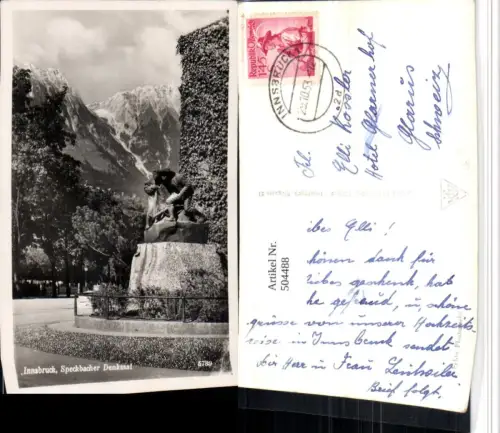 Innsbruck, Speckbacher Denkmal
5789
Republik Österreich
1.45
INNSBRUCK
Frl.
Elli Kossler
Hotel Glarner hof
Glarus
Schweiz
Artikel Nr.
504488
ibes Elli !
hönen dank für
liebes geschenk, hab
he gefreud, u, schöne
grüsse von unserer Hochzeits
reise in Innsbruck sendet
dir Herr u Frau
Brief folgt.